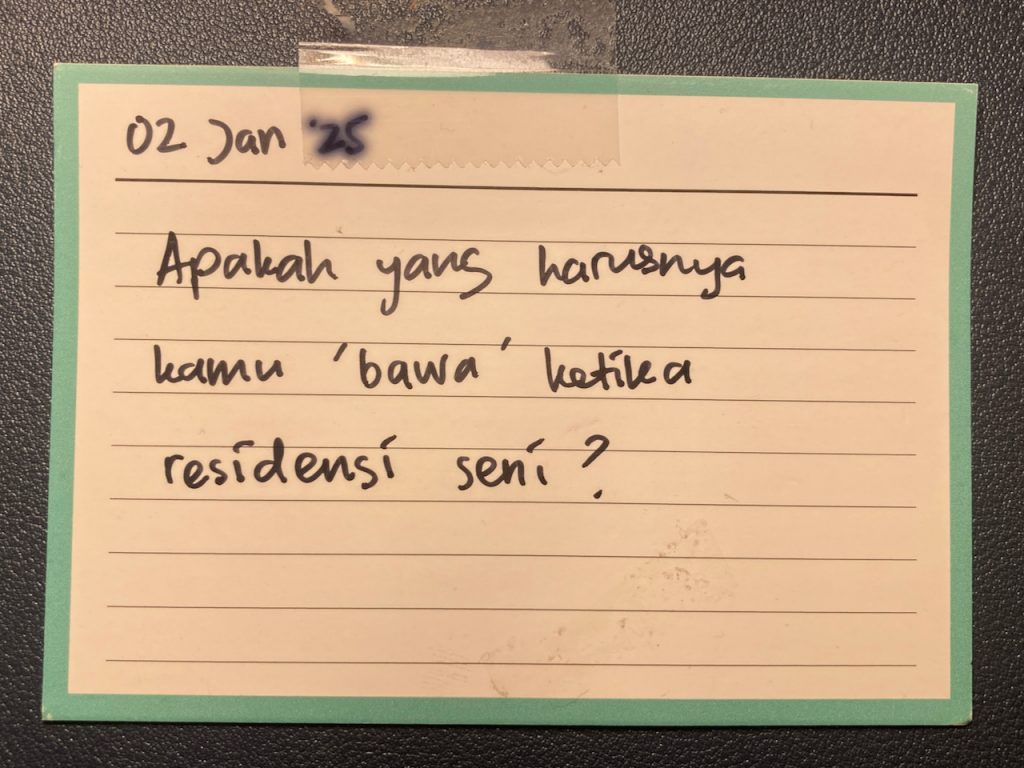 02 Jan '25
Apakah yang harusnya
kamu 'bawa' ketika
residensi seni?